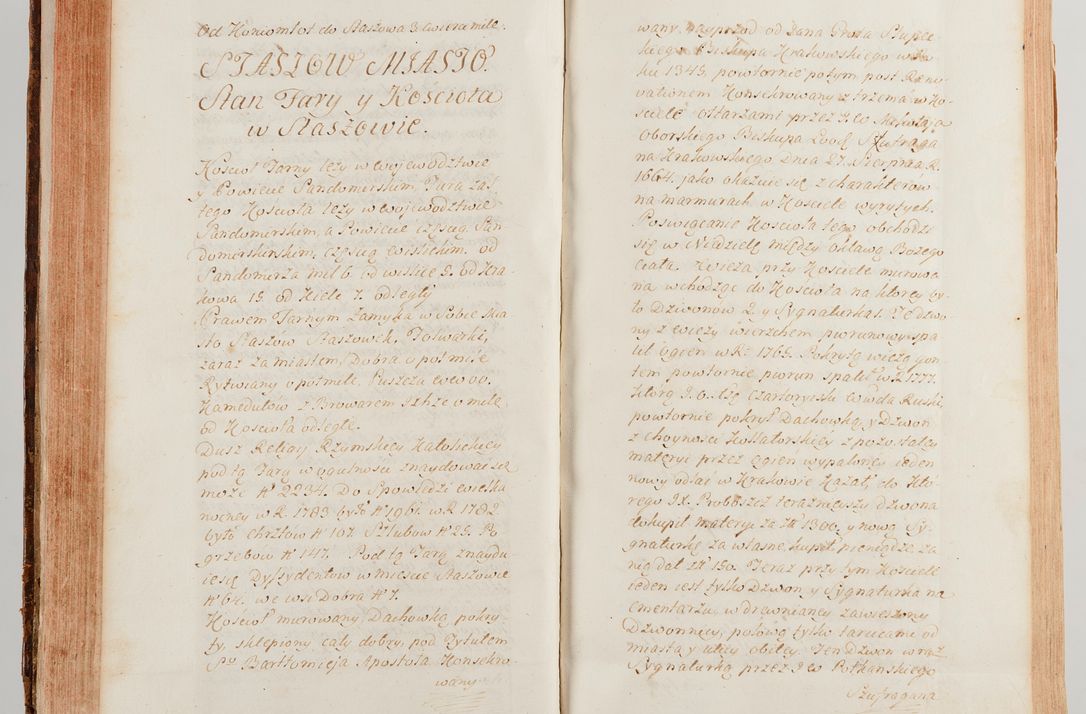 Od Koniomłot do Staszowa 3 ćwierci mile.
STASZOW MIASTO.
Stan Fary y Kościoła
w Staszowie.
Kosciol Farny leży w Wojewodztwie
y Powiecie Sandomirskim, Fara zaś
tego Kościoła leży w Wojewodztwie
Sandomirskim, a Powiecie częścią San-
domirskim, częścią wislickim, od
Sandomirza mil 6. od wislice 9. od Kra-
kowa 15 od Kielc 7. odległy
Prawem Farnym zamyka w Sobie Mia-
sto Staszów Staszowek, Folwarki,
zaraz za miastem, Dobra o poł mile
Rytwiany o poł mile. Puszcza
Kamedułow z Browarem o mile
od Kosciola odległe.
Dusz Religij Rzymskiey Katolickiey
pod tą Farą w ogulnosci znaydować się
może Nº 2234. Do Spowiedzi wielka
nocney w R. 1783 było Nº 1961. w R. 1782
było chrztow Nº 107 Szlubow Nº 25. Po
grzebow Nº 147. Pod tą Farą znaydu
ie się Dyssydentow w miescie Staszowie
Nº 64. we wsi Dobra Nº 7.
Kosciol murowany, Dachowką pokry-
ty, sklepiony cały dobry, pod Tytułem
Sgo Bartłomieja Apostoła Konsekro-
wany
wany nayprzod od Jana Grota Słupec-
kiego Biskupa Krakowskiego w Ro-
ku 1345. powtornie potym post Reno-
vationem Konsekrowany z trzema w Ko-
sciele ołtarzami przez Mikołaja
Oborskiego Biskupa Laod. Szufraga
na Krakowskiego Dnia 27. Sierpnia R.
1664. jako okazuie się z charakterow
na marmurach w Kosciele wyrytych.
Poswięcanie Kosciola tego obchodzi
się w Niedzielę między oktawą Bożego
Ciała. Wieża przy Kosciele murowa
na wchodząc do Kosciola na ktorey by-
ło Dzwonow 2. y Sygnaturka 1. Te dzwo
ny z wieży wierzchem piorunowy spa
lił ogień w R. 1765. Pokrytą wieżą gon
tem powtornie piorun spalił w R. 1777.
ktorą Czartoryiski Ruski,
powtornie pokrył Dachowką, y Dzwon
z choyności Kollatorskiey z pozostałey
materyi przez ogień wypaloney ieden
nowy odlać w Krakowie kazał, do kto-
rego Proboszcz teraznieyszy dzwona
dokupił materyi za Zł 1300. y nową Sy-
gnaturkę za własne kupił pieniądze za
nią dał Zł 150. Teraz przy tym Kościele
ieden iest tylko Dzwon y Sygnaturka na
cmentarzu, w drewnianey zawieszony
Dzwonnicy, połową tylko tarcicami od
miasta y ulicy obitey. Ten Dzwon wraz
Sygnaturką przez Potkanskiego
Szufragana